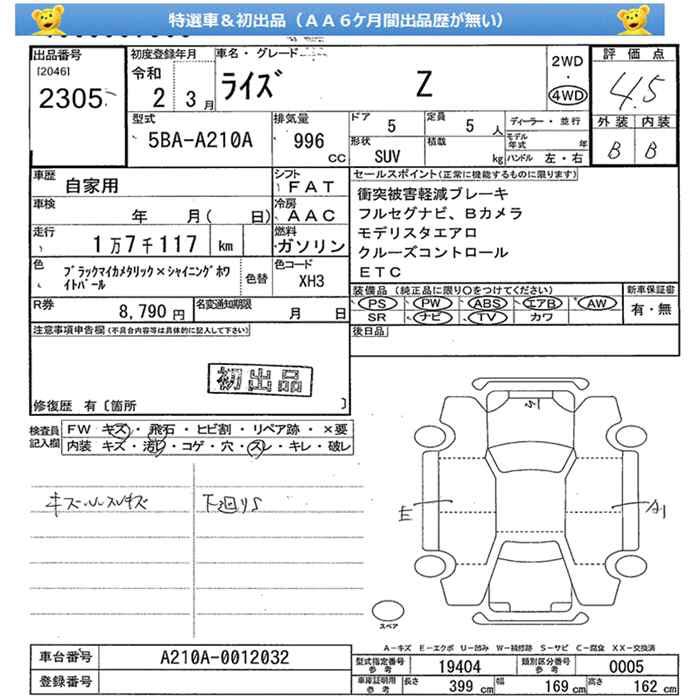 特選車＆初出品（ＡＡ６ケ月間出品歴が無い）
出品番号
[2046]
2305
初度登録年月
令和
2 3月
車名・グレード
ライズ Z
2WD
・
4WD
評価点
4.5
外装 内装
B B
型式
5BA-A210A
排気量
996
CC
ドア
5
定員
5 人
形状
SUV
積載
kg
ディーラー・並行
モデル年式 年
ハンドル 左・右
車歴
自家用
シフト
ＦＡＴ
車検
年 月( 日)
冷房
ＡＡＣ
走行
１万７千117 km
燃料
ガソリン
色
ブラックマイカメタリック×シャイニングホワイトパール
色替
色コード
XH3
R券
8,790 円
名変通知期限
月 日
セールスポイント(正常に機能するものに限ります)
衝突被害軽減ブレーキ
フルセグナビ、Ｂカメラ
モデリスタエアロ
クルーズコントロール
ＥＴＣ
装備品（純正品に限り○をつけてください）
PS PW ABS エアB AW
SR ナビ TV カワ
新車保証書
有・無
後日品
注意事項申告欄(不具合内容等は具体的に記入して下さい)
初出品
修復歴 有〔箇所 〕
検査員記入欄
ＦＷ キズ・飛石・ヒビ割・リペア跡・×要
内装 キズ・汚れ・コゲ・穴・スレ・キレ・破レ
下廻りS
E
A1
スペア
A－キズ E－エクボ U－凹み W－補修跡 S－サビ C－腐食 XX－交換済
車台番号
A210A-0012032
登録番号
型式指定番号
参考
19404
類別区分番号
参考
0005
車庫証明用
参考
長さ 399 cm
幅 169 cm
高さ 162 cm